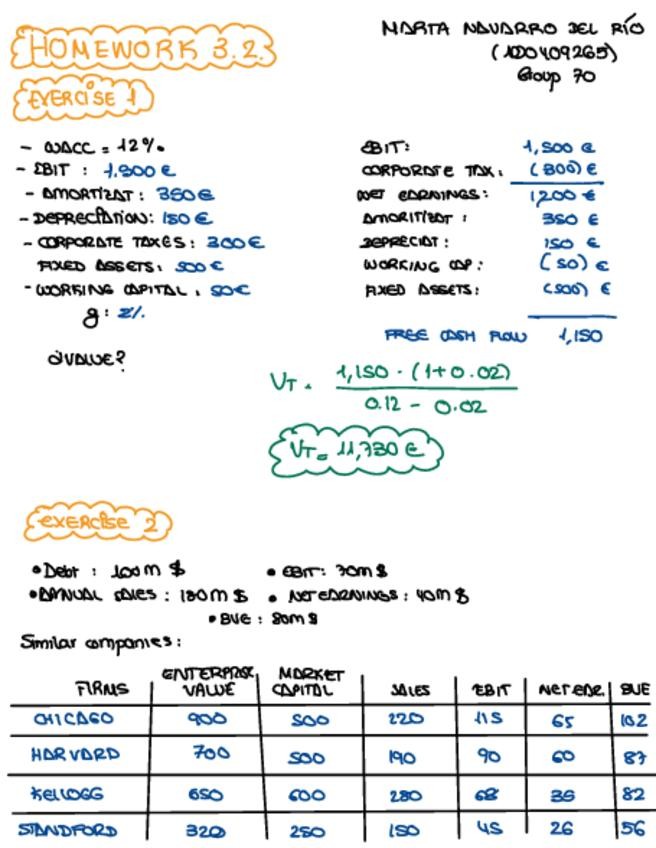 HOMEWORK 3.2.
MARTA NAVARRO DEL RÍO
(100409265)
Group 70
EXERCISE 1
- WACC = 12%.
- EBIT : 1.500 €
- AMORTIZAT : 350 €
- DEPRECIATION: 150 €
- CORPORATE TAXES : 300 €
FIXED ASSETS : 500 €
- WORKING CAPITAL : 50 €
g : 2%.
¿VALUE?
EBIT: 1,500 €
CORPORATE TAX. (300) €
NET EARNINGS: 1200 €
AMORITIZAT : 350 €
DEPRECIAT: 150 €
WORKING CAP: (50) €
FIXED ASSETS: (500) €
FREE CASH FLOW 1,150
VT = 1,150 · (1+0.02)
0.12 - 0.02
VT = 11,730 €
exercise 2
• Debt : 100m $ • EBIT: 70m $
• ANNUAL SALES : 180m $ • NET EARNINGS : 40m $
• BVE : 80m $
Similar companies :
FIRMS ENTERPRISE VALUE MARKET CAPITAL SALES EBIT NET EAR. BVE
CHICAGO 900 500 220 115 65 102
HARVARD 700 500 190 90 60 87
KELLOGG 650 600 280 68 36 82
STANDFORD 320 250 150 45 26 56